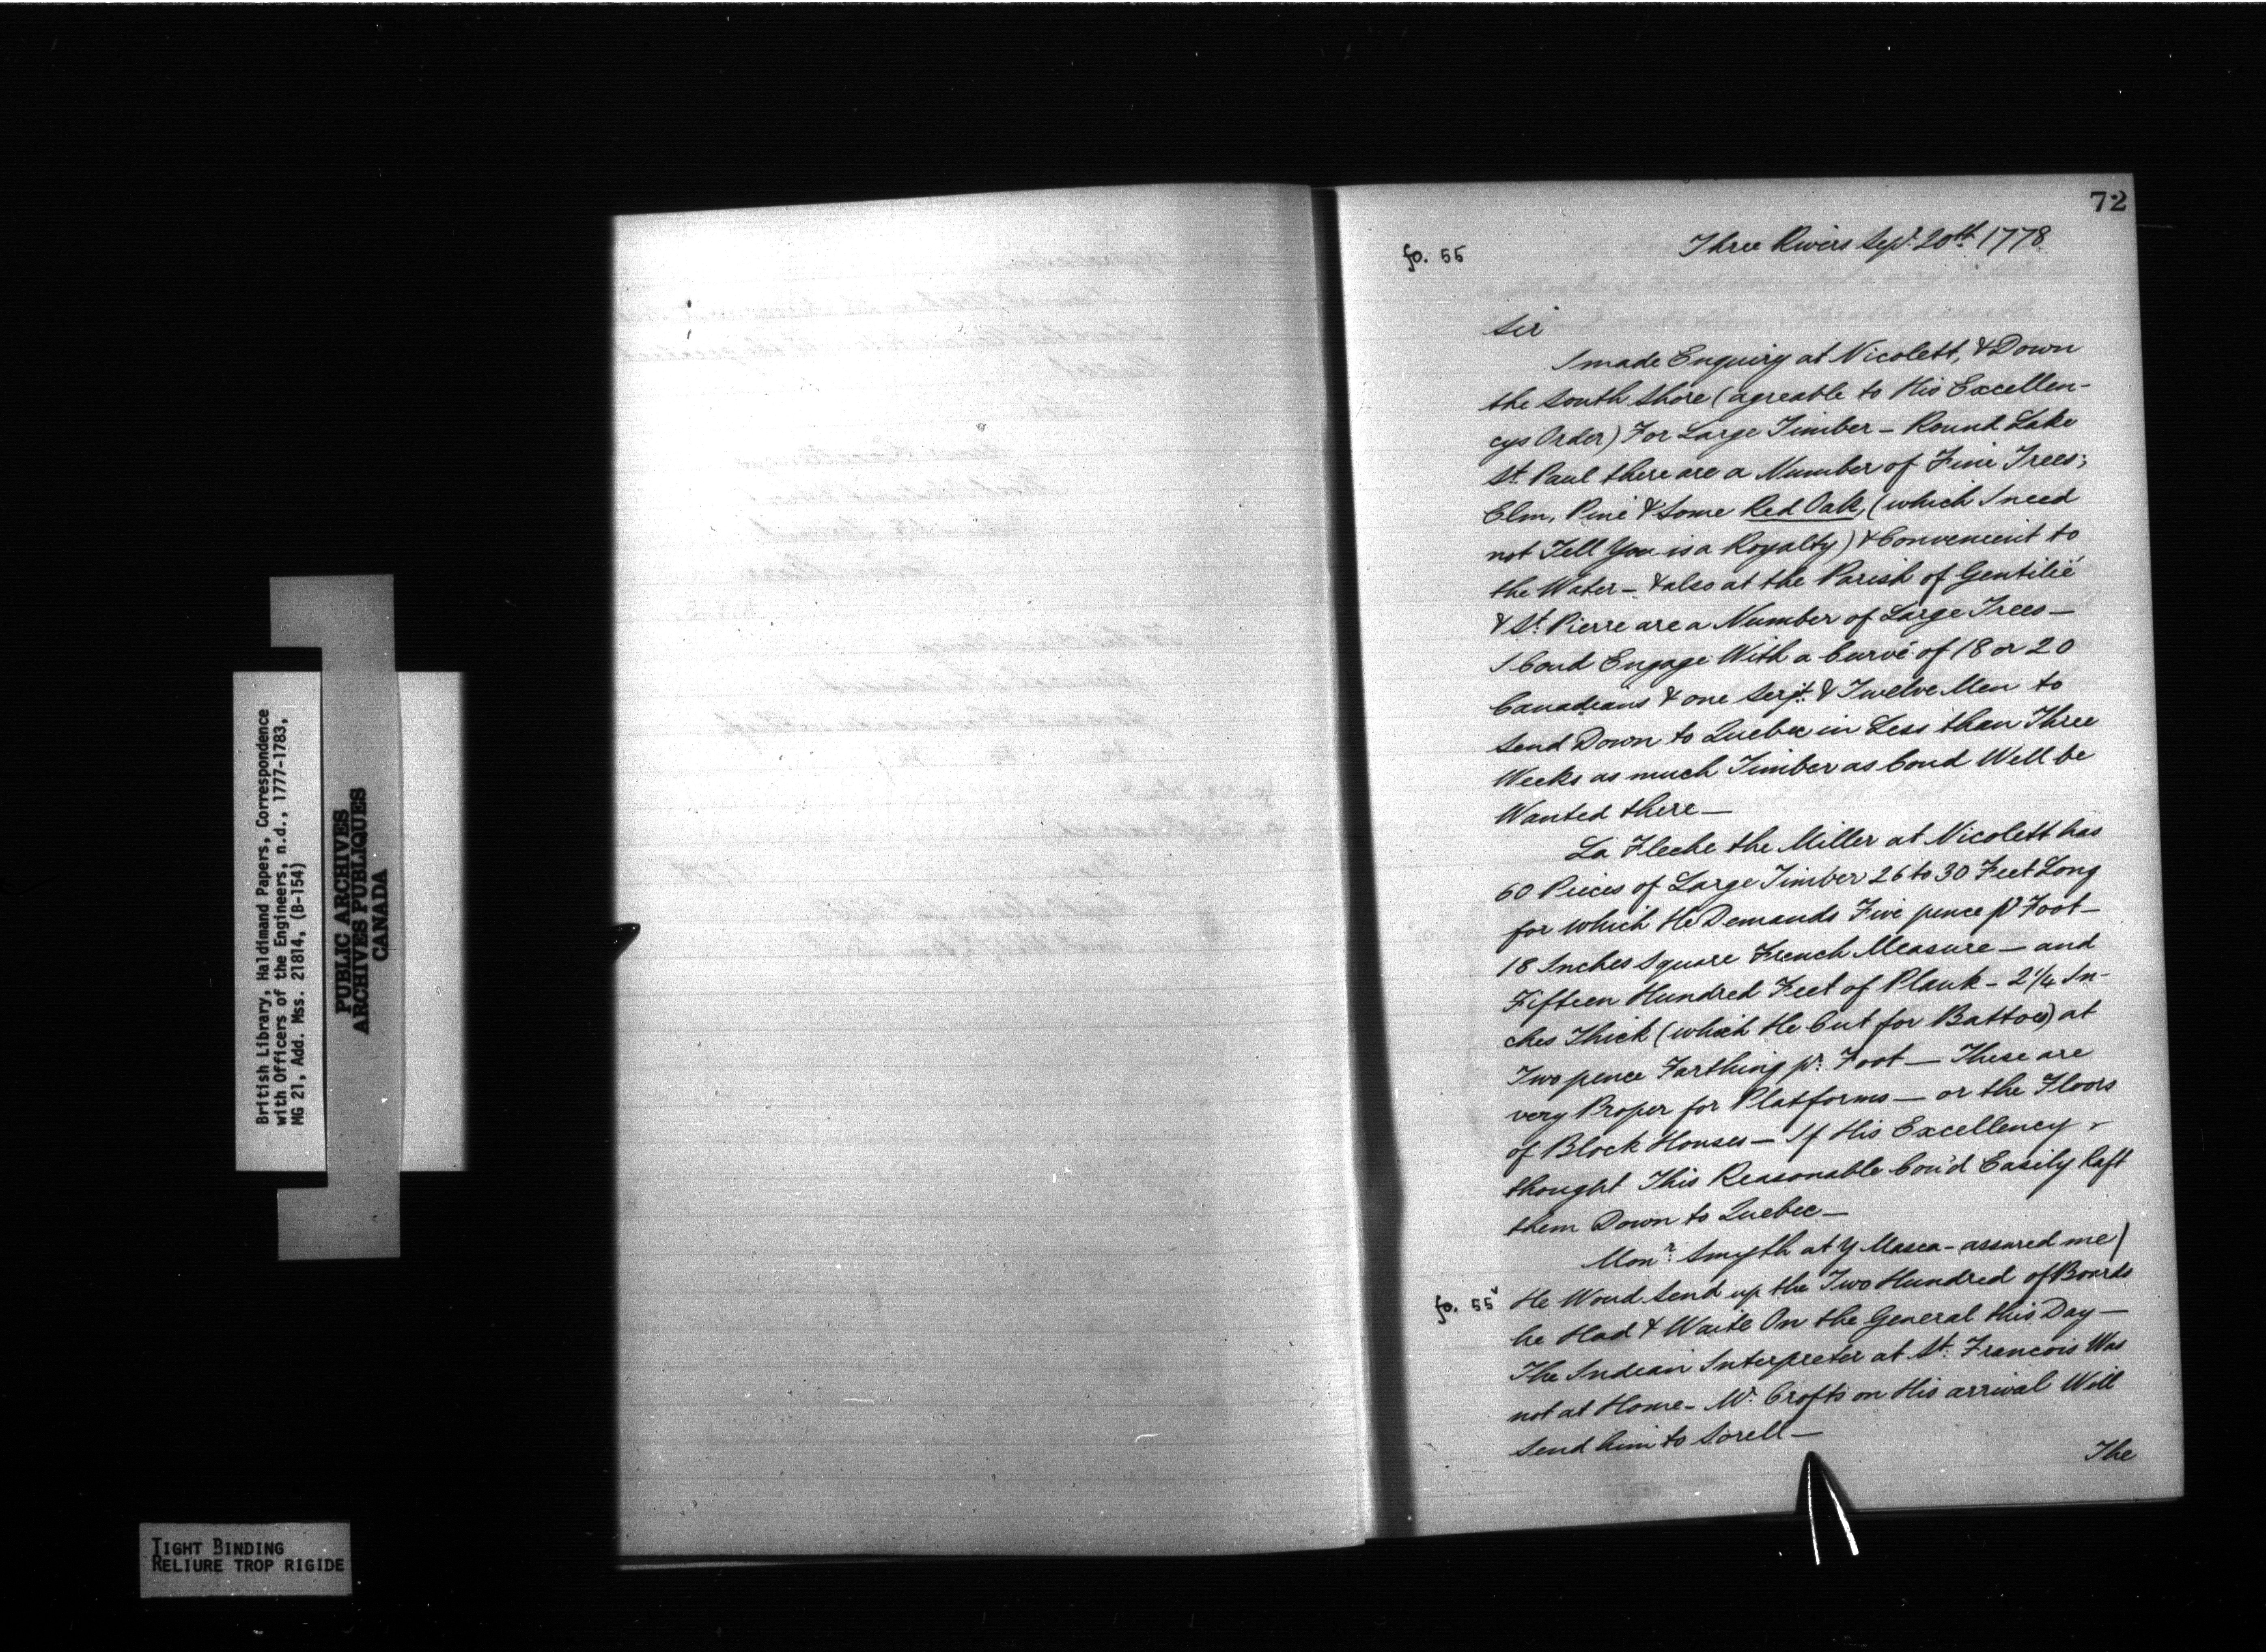 72
fo. 55
Three Rivers Sepr. 20th 1778.
Sir
I made Enquiry at Nicolett, & Down
the South Shore (agreable to His Excellen-
cys Order) For Large Timber – Round Lake
St. Paul there are a Number of Fine Trees;
Elm, Pine & Some Red Oak, (which I need
not Tell You is a Royalty) & Convenient to
the Water – & also at the Parish of Gentilié
& St. Pierre are a Number of Large Trees –
I Coud Engage With a Curvé of 18 or 20
Canadians & one Serjt. & Twelve Men to
Send Down to Quebec in Less than Three
Weeks as much Timber as Coud Well be
Wanted there –
La Fleche the Miller at Nicolett has
60 Pieces of Large Timber 26 to 30 Feet Long
for which He Demands Five pence pr Foot –
18 Inches Square French Measure – and
Fifteen Hundred Feet of Plank – 2 1/4 In-
ches Thick (which He Cut for Battoes) at
Two pence Farthing pr. Foot – These are
very Proper for Platforms – or the Floors
of Block Houses – If His Excellency
thought This Reasonable Cou'd Easily Raft
them Down to Quebec –
Monr. Smyth at Y Masca – assured me
fo. 55v He Woud Send up the Two Hundred of Boards
he Had & Waite On the General this Day –
The Indian Interpreter at St. Francois Was
not at Home – Mr. Crofts on His arrival Will
Send him to Sorell –
The
British Library, Haldimand Papers, Correspondence
with Officers of the Engineers, n.d., 1777-1783,
MG 21, Add. Mss. 21814, (B-154)
PUBLIC ARCHIVES
ARCHIVES PUBLIQUES
CANADA
TIGHT BINDING
RELIURE TROP RIGIDE